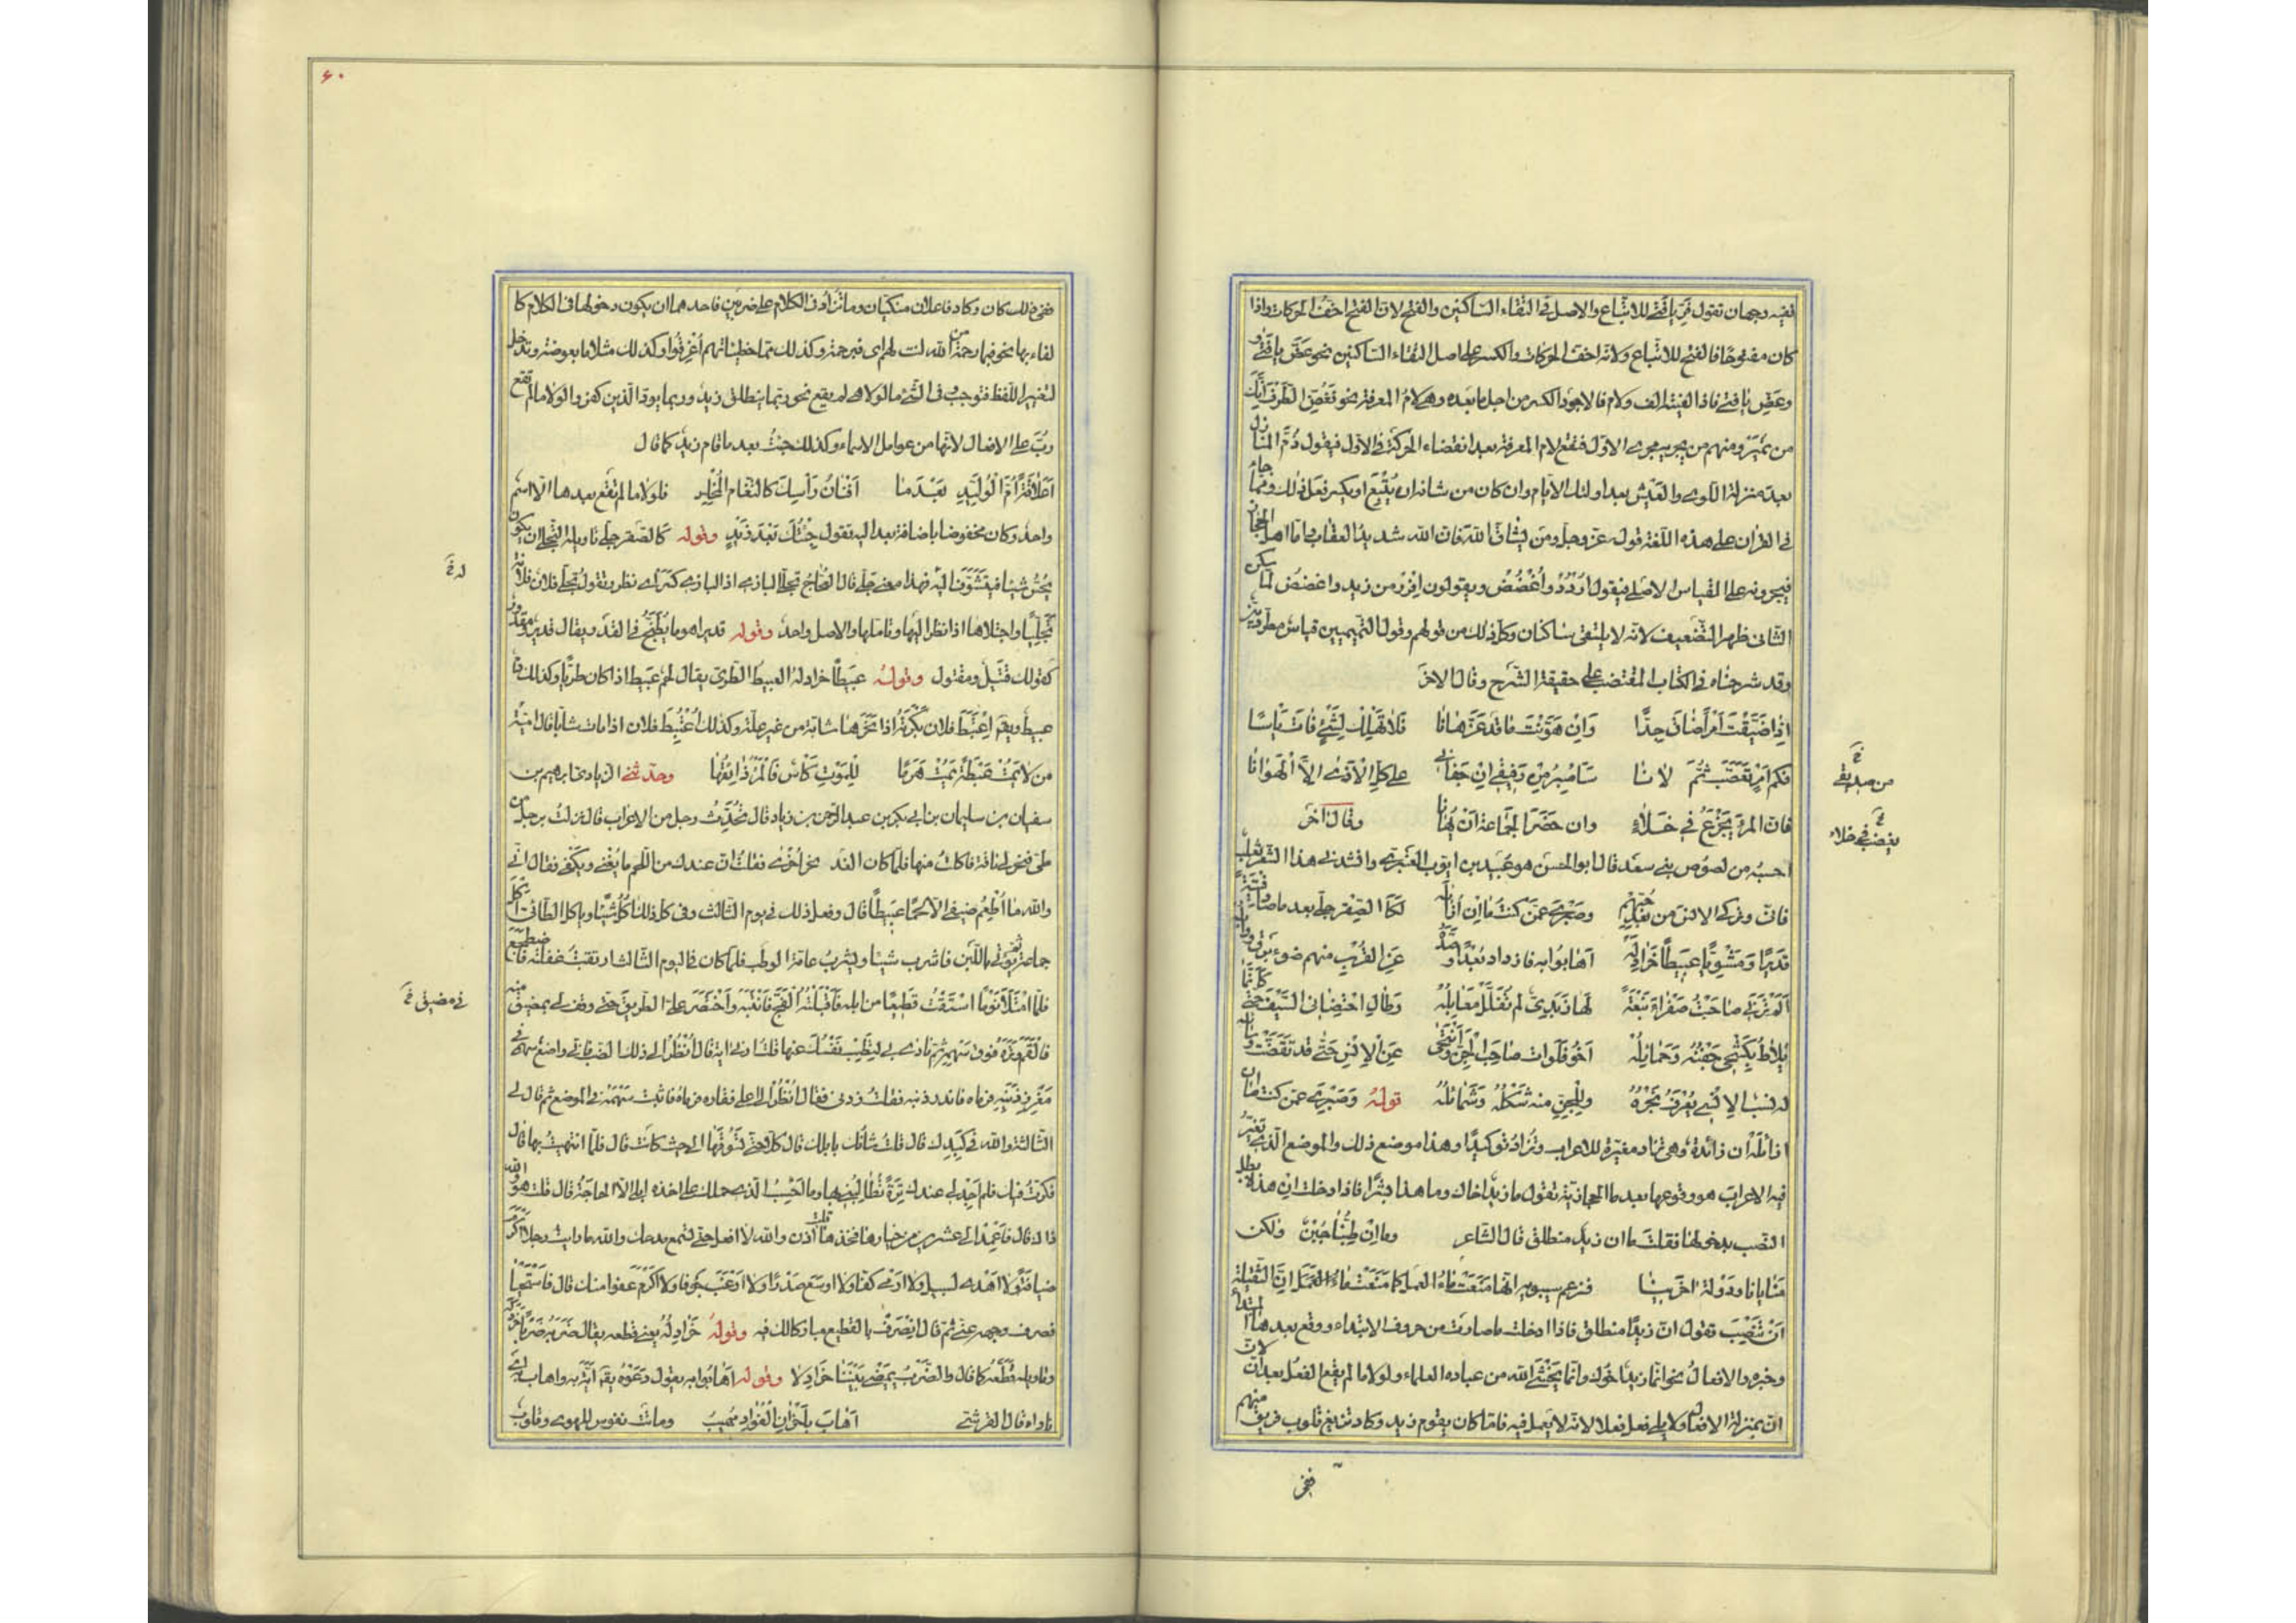 ففيه وجهان تقول فرّ يا فتى للاتباع والاصل فى التقاء الساكنين والفتح لان الفتح اخف الحركات واذا
كان مفتوحا فالفتح للاتباع ولانه اخف الحركات والكسر على اصل التقاء الساكنين نحو عضّ يا فتى و
وعضّ يا فتى فاذا لقيته الف ولام فالاجود الكسر من اجل ما بعده وهى لام المعرفة نحو فغضّ الطرف انك
من نمير ومنهم من يجريه مجرى الاول فتقع لام المعرفة بعد انقضاء الحركة فى الاول فيقول ذمّ المنازل
بعد منزلة اللوى والعيش بعد اولئك الايام وان كان من شانه ان يتبع او يكسر فعل ذلك ومما جاء
فى القران على هذه اللغة قول عز وجل ومن يشاق الله فان الله شديد العقاب واما اهل الحجاز
فيجرونه على القياس الاصلى فيقول اردد واغضض ويقولون افرر من زيد واغضض لما سكن
الثانى ظهر التضعيف لانه لا يلتقى ساكنان وكل ذلك من قولهم وقول التميميين قياس مطرد بين
وقد شرحناه فى الكتاب المقتضب على حقيقة الشرح وقال الاخر
اذا ضيقت امرا ضاق جدا وان هونت ما قد عز هانا فلا تهلك لشئ فات ياسا
فكم امر تصعب ثم لانا ساصبر من رفيقى ان جفانى على كل الاذى الا الهوانا
فان المرء يجزع فى خلاء وان حضر الجماعة ان يهانا وقال اخر
احسبه من لصوص بنى سعد قال ابو الحسن هو عبيد بن ايوب العنبرى وانشدنى هذا الشعر ثعلب
فانى وتركى الانس من بعد حبهم وصبرى عمن كنت ما ان ازايله لكالصقر جلى بعد ما صاد قنية
قديرا ومشويا عبيطا خرادله اهابوا به فازداد بعدا وصده عن القرب منهم ضوء برق ووابله
الم ترنى صاحبت صفراء نبعة لها ربدى لم تفلل معابله وطال احتضانى السيف حتى كانما
يلاط بكشحى جفنه وحمايله اخو فلوات صاحب الجن وانتحى عن الانس حتى قد تقضت وسائله
له نسب الانسى يعرف نجره وللجن منه شكله وشمائله قوله وصبرى عمن كنت ما ان
ازايله ان زائدة وهى تزاد مغيرة للاعراب وتزاد توكيدا وهذا موضع ذلك والموضع الذى تغير
فيه الاعراب هو وقوعها بعد ما الحجازية تقول ما زيد اخاك وما هذا بشرا فاذا ادخلت ان هذه بطل
النصب بدخولها فقلت ما ان زيد منطلق قال الشاعر وما ان طبنا جبن ولكن
منايانا ودولة اخرينا فزعم سيبويه انها منعت ما العمل كما منعت ما انّ الثقيلة
ان تنصب تقول ان زيدا منطلق فاذا ادخلت ما صارت من حروف الابتداء ووقع بعدها المبتدأ
وخبره والافعال نحو انما زيد اخوك وانما يخشى الله من عباده العلماء ولولا ما لم يقع الفعل بعد ان لان
ان بمنزلة الافعال ولا يلى فعل فعلا لانه لا يعمل فيه فاما كان يقوم زيد وكاد تزيغ قلوب فريق منهم
ففى
خ
من صديقى
خ
يغضب فى خلاء
٦٠
ففى ذلك كان وكاد فاعلان مكنيان وما تزاد فى الكلام على ضربين فاحدهما ان يكون دخولها فى الكلام كا
لغاء بها نحو فبما رحمة من الله لنت لهم اى فبرحمة وكذلك مما خطيئاتهم اغرقوا وكذلك مثلا ما بعوضة وتدخل
لتغيير اللفظ فتوجب فى الشئ ما لولا هى لم يقع نحو ربما ينطلق زيد وربما يود الذين كفروا لولا ما لم تقع
رب على الافعال لانها من عوامل الاسماء وكذلك جئت بعد ما قام زيد كما قال
اعلاقة ام الوليد بعد ما افنان راسك كالثغام المخلس فلولا ما لم تقع بعدها الا اسم
واحد وكان مخفوضا باضافة بعد اليه تقول جئتك بعد زيد وقوله كالصقر جلى تاويل التجلى ان يكون
يحس شيئا فيتشوف اليه فهذا معنى جلى قال العجاج تجلى البازى اذا البازى كسر اى نظر يقول تجلى فلان فلانة
تجليا واجتلاها اذا نظر اليها وتاملها والاصل واحد وقوله قديرا هو ما يطبخ فى القدر يقال قدير ومقدور
كقولك قتيل ومقتول وقوله عبيطا خرادله العبيط الطرى يقال لحم عبيط اذا كان طريا وكذلك دم
عبيط ويقم اعتبط فلان بكرته اذا نحرها شابة من غير علة وكذلك اعتبط فلان اذا مات شابا قال امية
من لا يمت عبطة يمت هرما للموت كاس فالمرء ذائقها وحدثنى الزيادى ابرهيم بن
سفيان بن سليمان بن ابى بكر بن عبد الرحمن بن زياد قال تحدث رجل من الاعراب قال نزلت برجل من
طى فنحر لى ناقة فاكلت منها فلما كان الغد نحر اخرى فقلت ان عندك من اللحم ما يغنى ويكفى فقال انى
والله ما اطعم ضيفى الا لحما عبيطا قال وفعل ذلك فى يوم الثالث وفى كل ذلك اكل شيئا وياكل الطائى اكل
جماعة ثم يؤتى باللبن فاشرب شيئا ويشرب عامة الوطب فلما كان فى اليوم الثالث ارتقبت غفلته فاضطجع
فلما امتلأ نوما استقت قطيعا من ابله فاقبلته الفج فانتبه واختصر على الطريق حتى وقف لى بمضيق منه
فالقم وتره فوق سهمه ثم نادى بى لتطب نفسك عنها قلت ارنى اية قال انظر الى ذلك الضب فانى واضع سهمى فى
مغرز ذنبه فرماه فاندر ذنبه فقلت زدنى فقال انظر الى اعلى فقاره فرماه فاثبت سهمه فى الموضع ثم قال لى
الثالثة والله فى كبدك قال قلت شانك بابلك قال كلا حتى تسوقها الى حيث كانت قال فلما انتهيت بها قال
فكرت فيك فلم اجد لى عندك ترة تطالبنى بها وما احسب الذى حملك على اخذ ابلى الا الحاجة قال قلت هو والله
ذاك قال فاعمد الى عشرين من خيارها فخذها قلت اذن والله لا افعل حتى تسمع مدحك والله ما رايت رجلا اكرم
ضيافة ولا اهدى لسبيل ولا ارمى كفا ولا اوسع صدرا ولا ارغب جوفا ولا اكرم عفوا منك قال فاستحيا
فصرف وجهه عنى ثم قال انصرف بالقطيع مباركا لك فيه وقوله خرادله يعنى قطعه يقال ضربه ضربا خردله
وتاويله قطعه كما قال والضرب يمضى بيننا خرادلا وقوله اهابوا به يقول دعوه يقم ايه به واهاب به اى
ناداه قال القرشى اهاب باحزان الفؤاد مهيب وماتت نفوس للهوى وقلوب
له خ
فى مضيق خ